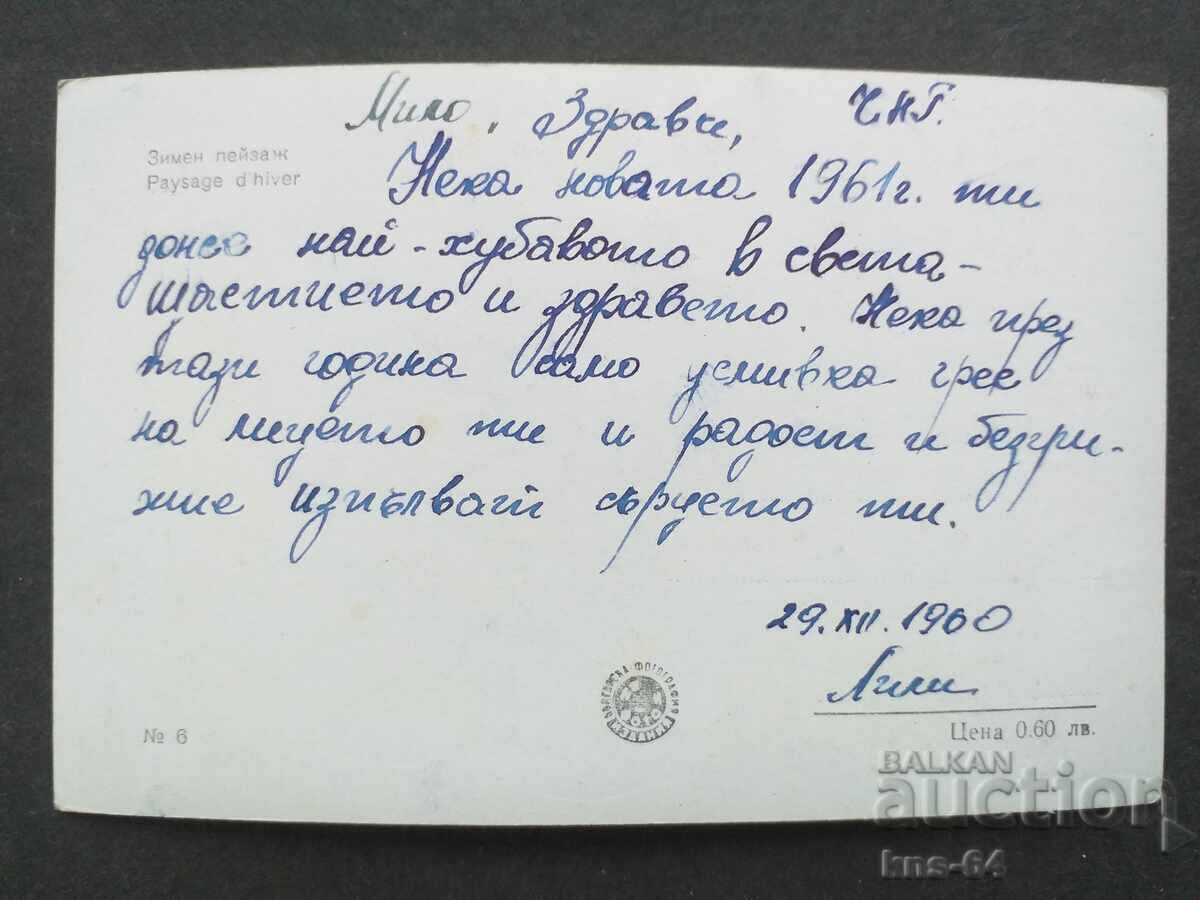 Мило, Здравки, ЧНГ.
Зимен пейзаж
Paysage d'hiver
Нека новата 1961г. ти
донесе най-хубавото в света-
щастието и здравето. Нека през
тази година само усмивка грее
на лицето ти и радост и безгри-
жие изпълват сърцето ти.
29.XII.1960
Лили
№ 6
Цена 0.60 лв.
БЪЛГАРСКА ФОТОГРАФИЯ
BALKAN
auction
kns-64